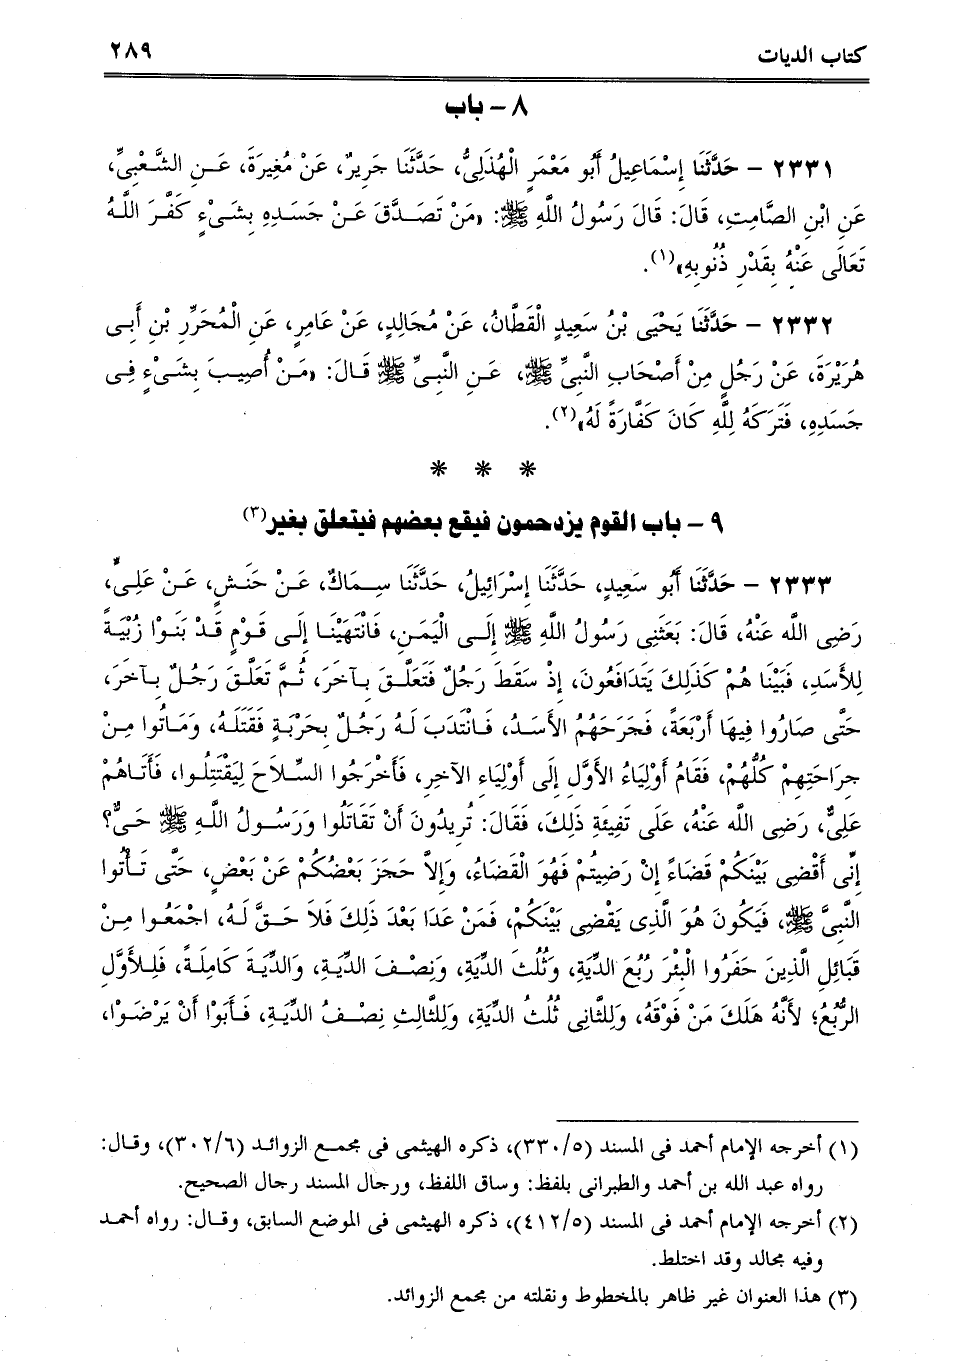 كتاب الديات ٢٨٩
٨ - باب
٢٣٣١ - حَدَّثَنَا إِسْمَاعِيلُ أَبُو مَعْمَرٍ الْهُذَلِىُّ، حَدَّثَنَا جَرِيرٌ، عَنْ مُغِيرَةَ، عَنِ الشَّعْبِىِّ،
عَنِ ابْنِ الصَّامِتِ، قَالَ: قَالَ رَسُولُ اللَّهِ ﷺ: «مَنْ تَصَدَّقَ عَنْ جَسَدِهِ بِشَىْءٍ كَفَّرَ اللَّهُ
تَعَالَى عَنْهُ بِقَدْرِ ذُنُوبِهِ»(١).
٢٣٣٢ - حَدَّثَنَا يَحْيَى بْنُ سَعِيدٍ الْقَطَّانُ، عَنْ مُجَالِدٍ، عَنْ عَامِرٍ، عَنِ الْمُحَرَّرِ بْنِ أَبِى
هُرَيْرَةَ، عَنْ رَجُلٍ مِنْ أَصْحَابِ النَّبِىِّ ﷺ، عَنِ النَّبِىِّ ﷺ قَالَ: «مَنْ أُصِيبَ بِشَىْءٍ فِى
جَسَدِهِ، فَتَرَكَهُ لِلَّهِ كَانَ كَفَّارَةً لَهُ»(٢).
* * *
٩ - باب القوم يزدحمون فيقع بعضهم فيتعلق بغير(٣)
٢٣٣٣ - حَدَّثَنَا أَبُو سَعِيدٍ، حَدَّثَنَا إِسْرَائِيلُ، حَدَّثَنَا سِمَاكٌ، عَنْ حَنَشٍ، عَنْ عَلِىٍّ،
رَضِى اللَّه عَنْهُ، قَالَ: بَعَثَنِى رَسُولُ اللَّهِ ﷺ إِلَى الْيَمَنِ، فَانْتَهَيْنَا إِلَى قَوْمٍ قَدْ بَنَوْا زُبْيَةً
لِلأَسَدِ، فَبَيْنَا هُمْ كَذَلِكَ يَتَدَافَعُونَ، إِذْ سَقَطَ رَجُلٌ فَتَعَلَّقَ بِآخَرَ، ثُمَّ تَعَلَّقَ رَجُلٌ بِآخَرَ،
حَتَّى صَارُوا فِيهَا أَرْبَعَةً، فَجَرَحَهُمُ الأَسَدُ، فَانْتَدَبَ لَهُ رَجُلٌ بِحَرْبَةٍ فَقَتَلَهُ، وَمَاتُوا مِنْ
جِرَاحَتِهِمْ كُلُّهُمْ، فَقَامُ أَوْلِيَاءُ الأَوَّلِ إِلَى أَوْلِيَاءِ الآخِرِ، فَأَخْرَجُوا السِّلاَحَ لِيَقْتَتِلُوا، فَأَتَاهُمْ
عَلِىٌّ، رَضِى اللَّه عَنْهُ، عَلَى تَفِيئَةِ ذَلِكَ، فَقَالَ: تُرِيدُونَ أَنْ تَقَاتَلُوا وَرَسُولُ اللَّهِ ﷺ حَىٌّ؟
إِنِّى أَقْضِى بَيْنَكُمْ قَضَاءً إِنْ رَضِيتُمْ فَهُوَ الْقَضَاءُ، وَإِلاَّ حَجَزَ بَعْضُكُمْ عَنْ بَعْضٍ، حَتَّى تَأْتُوا
النَّبِىَّ ﷺ، فَيَكُونَ هُوَ الَّذِى يَقْضِى بَيْنَكُمْ، فَمَنْ عَدَا بَعْدَ ذَلِكَ فَلاَ حَقَّ لَهُ، اجْمَعُوا مِنْ
قَبَائِلِ الَّذِينَ حَفَرُوا الْبِئْرَ رُبُعَ الدِّيَةِ، وَثُلُثَ الدِّيَةِ، وَنِصْفَ الدِّيَةِ، وَالدِّيَةَ كَامِلَةً، فَلِلأَوَّلِ
الرُّبُعُ؛ لأَنَّهُ هَلَكَ مَنْ فَوْقَهُ، وَلِلثَّانِى ثُلُثُ الدِّيَةِ، وَلِلثَّالِثِ نِصْفُ الدِّيَةِ، فَأَبَوْا أَنْ يَرْضَوْا،
(١) أخرجه الإمام أحمد فى المسند (٣٣٠/٥)، ذكره الهيثمى فى مجمع الزوائد (٣٠٢/٦)، وقال:
رواه عبد الله بن أحمد والطبرانى بلفظ: وساق اللفظ، ورجال المسند رجال الصحيح.
(٢) أخرجه الإمام أحمد فى المسند (٤١٢/٥)، ذكره الهيثمى فى الموضع السابق، وقال: رواه أحمد
وفيه مجالد وقد اختلط.
(٣) هذا العنوان غير ظاهر بالمخطوط ونقلته من مجمع الزوائد.